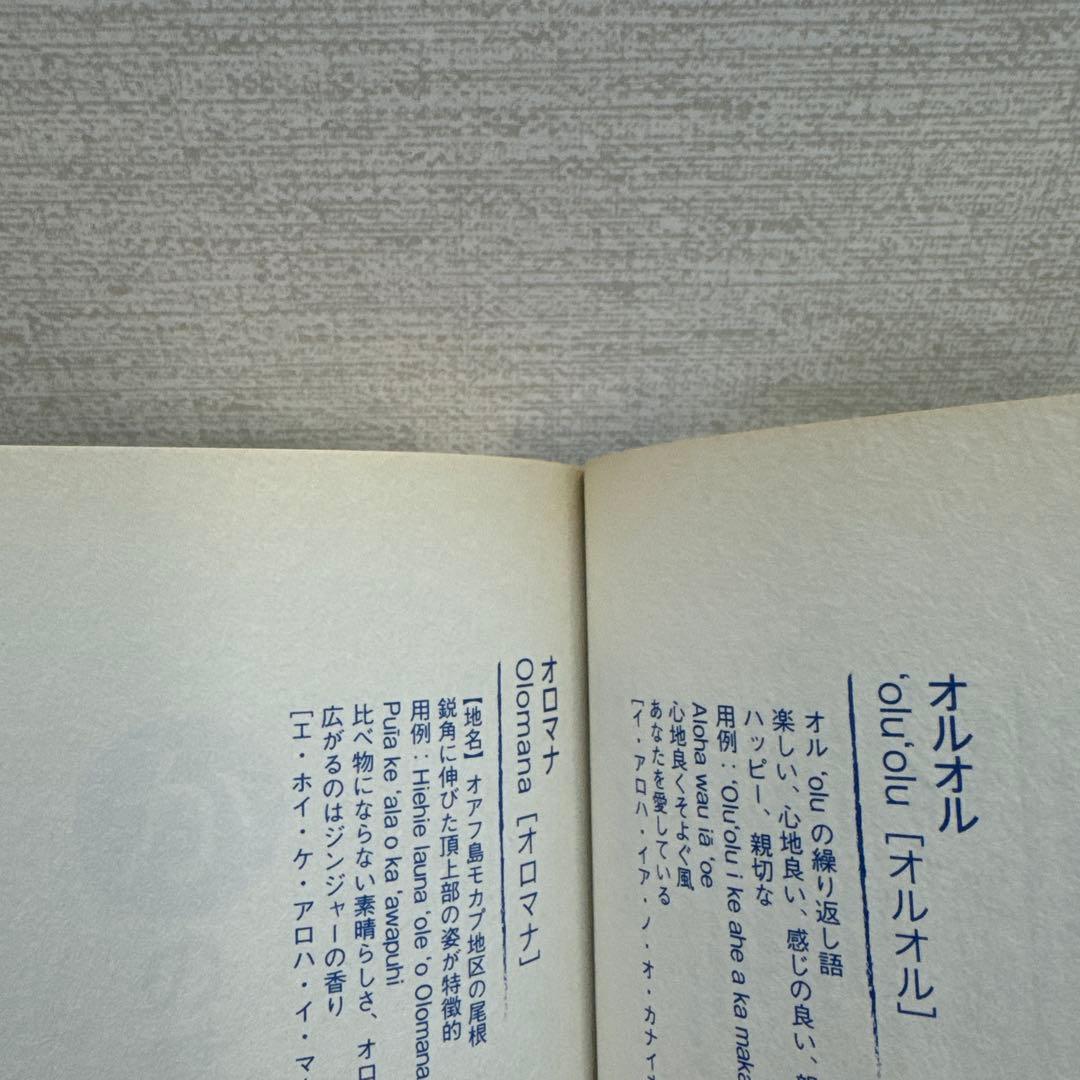 オルオル
‘olu‘olu [オルオル]
オル ‘olu の繰り返し語
楽しい、心地良い、感じの良い、
ハッピー、親切な
用例：‘Olu‘olu i ke ahe a ka
Aloha wau iā ‘oe
心地良くそよぐ風
あなたを愛している
[イ・アロハ・イア・ノ・オ・カナイ
オロマナ
Olomana [オロマナ]
【地名】オアフ島モカプ地区の尾根
鋭角に伸びた頂上部の姿が特徴的
用例：Hiehie launa ‘ole ‘o Olomana
Puīa ke ‘ala o ka ‘awapuhi
比べ物にならない素晴らしさ、オロ
広がるのはジンジャーの香り
[エ・ホイ・ケ・アロハ・イ・マ